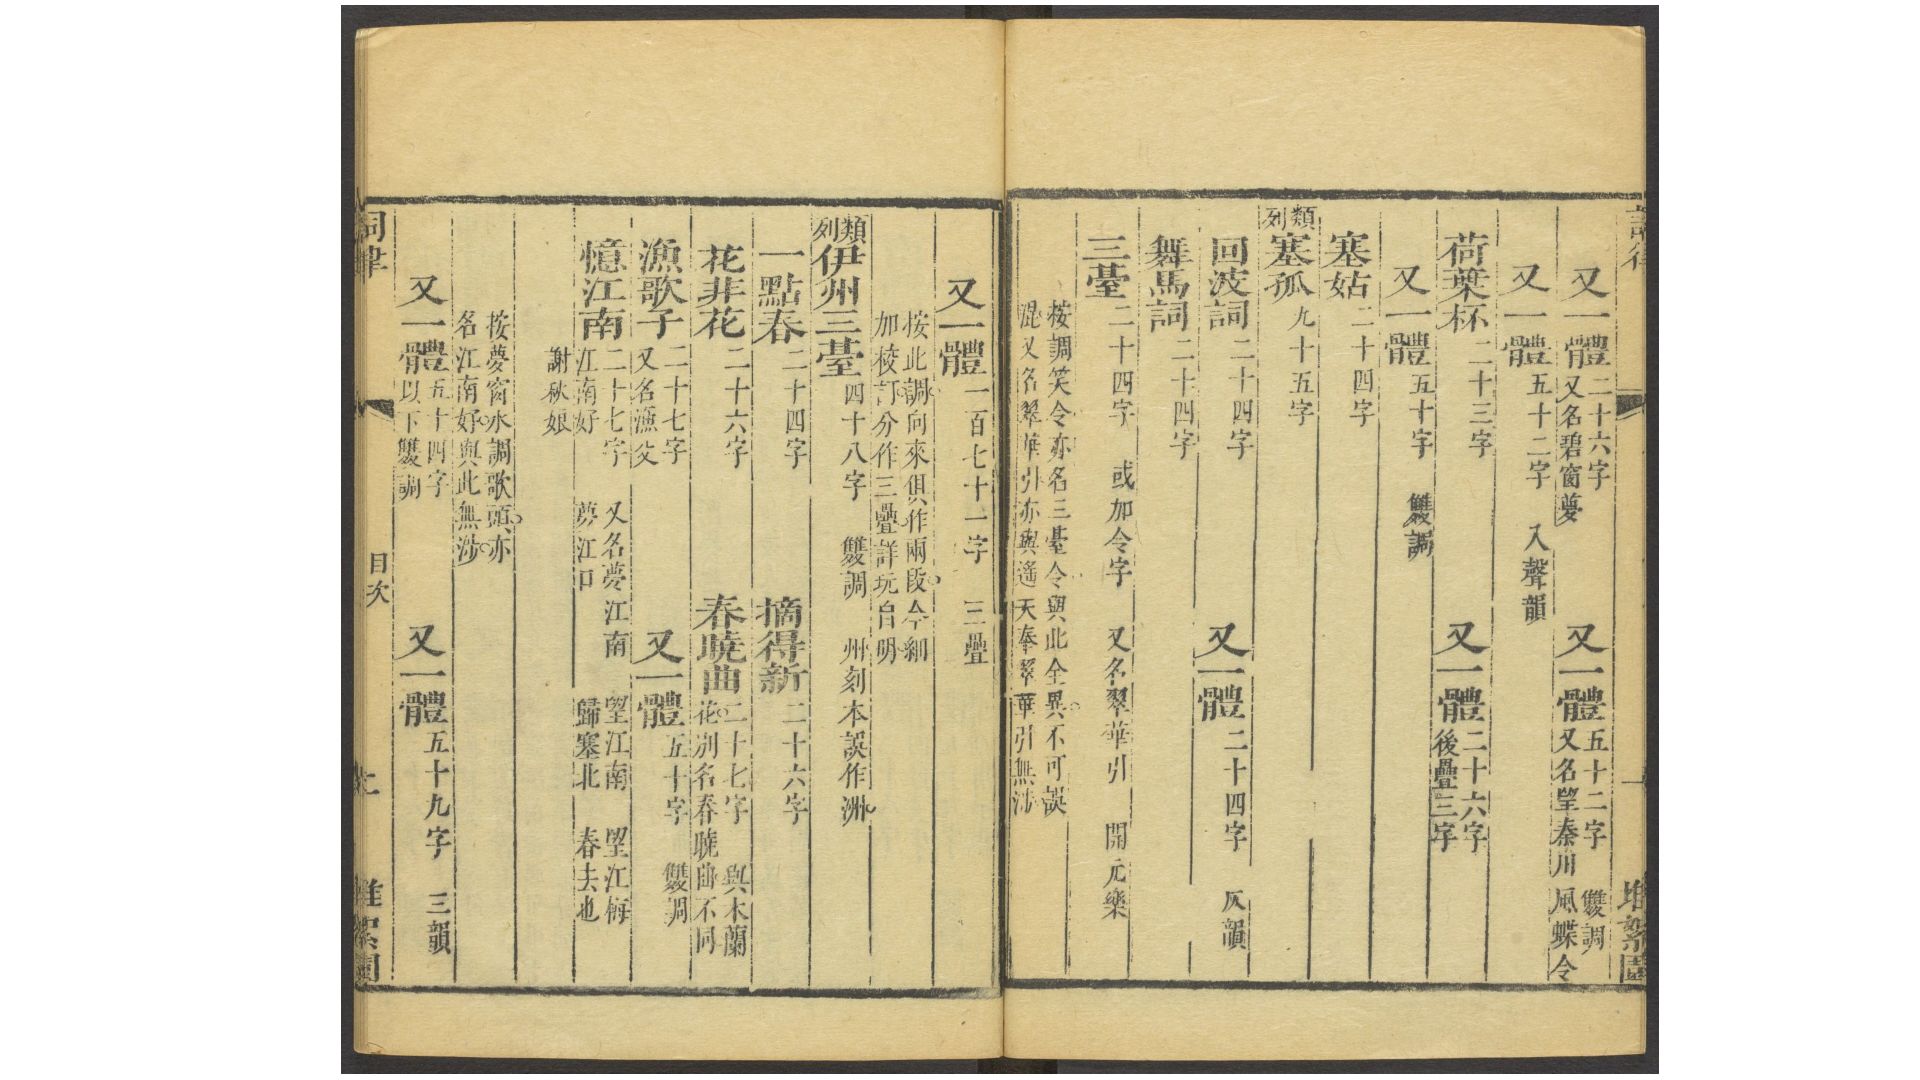 又一體 二十六字 又名碧窗夢 又一體 五十二字 雙調 又名望秦川 風蝶令
又一體 五十二字 入聲韻
荷葉杯 二十三字 又一體 二十六字 後疊三字
又一體 五十字 雙調
塞姑 二十四字
類列 塞孤 九十五字
回波詞 二十四字 又一體 二十四字 仄韻
舞馬詞 二十四字
三臺 二十四字 或加令字 又名翠華引 開元樂
按調笑令亦名三臺令與此全異不可誤
混又名翠華引亦與遙天奉翠華引無涉
又一體 一百七十一字 三疊
按此調向來俱作兩段今細
加校訂分作三疊詳玩自明
類列 伊州三臺 四十八字 雙調 州刻本誤作洲
一點春 二十四字 摘得新 二十六字
花非花 二十六字 春曉曲 二十七字 與木蘭花別名春曉曲不同
漁歌子 二十七字 又名漁父 又一體 五十字 雙調
憶江南 二十七字 又名夢江南 望江南 望江梅
江南好 夢江口 歸塞北 春去也
謝秋娘
按夢窗水調歌頭亦
名江南好與此無涉
又一體 五十四字 以下雙調 又一體 五十九字 三韻
詞律 目次 堆絮園